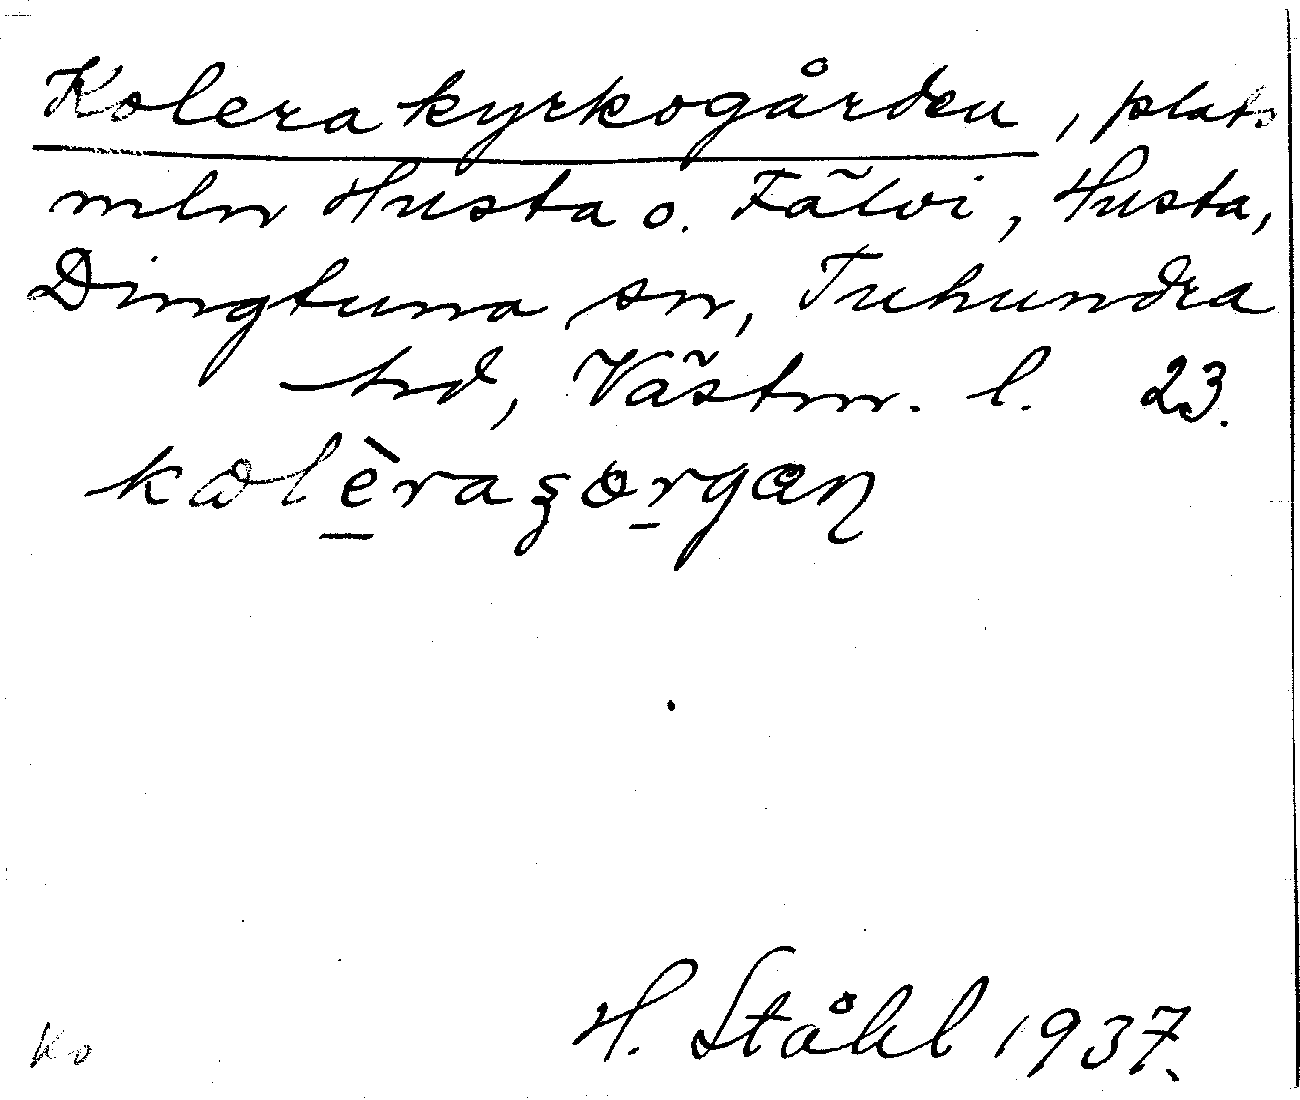 Kolerakyrkogården, plats
mln Husta o. Fälvi, Husta,
Dingtuna sn, Tuhundra
hd, Västm. l. 23.
H. Ståhl 1937.
Ko